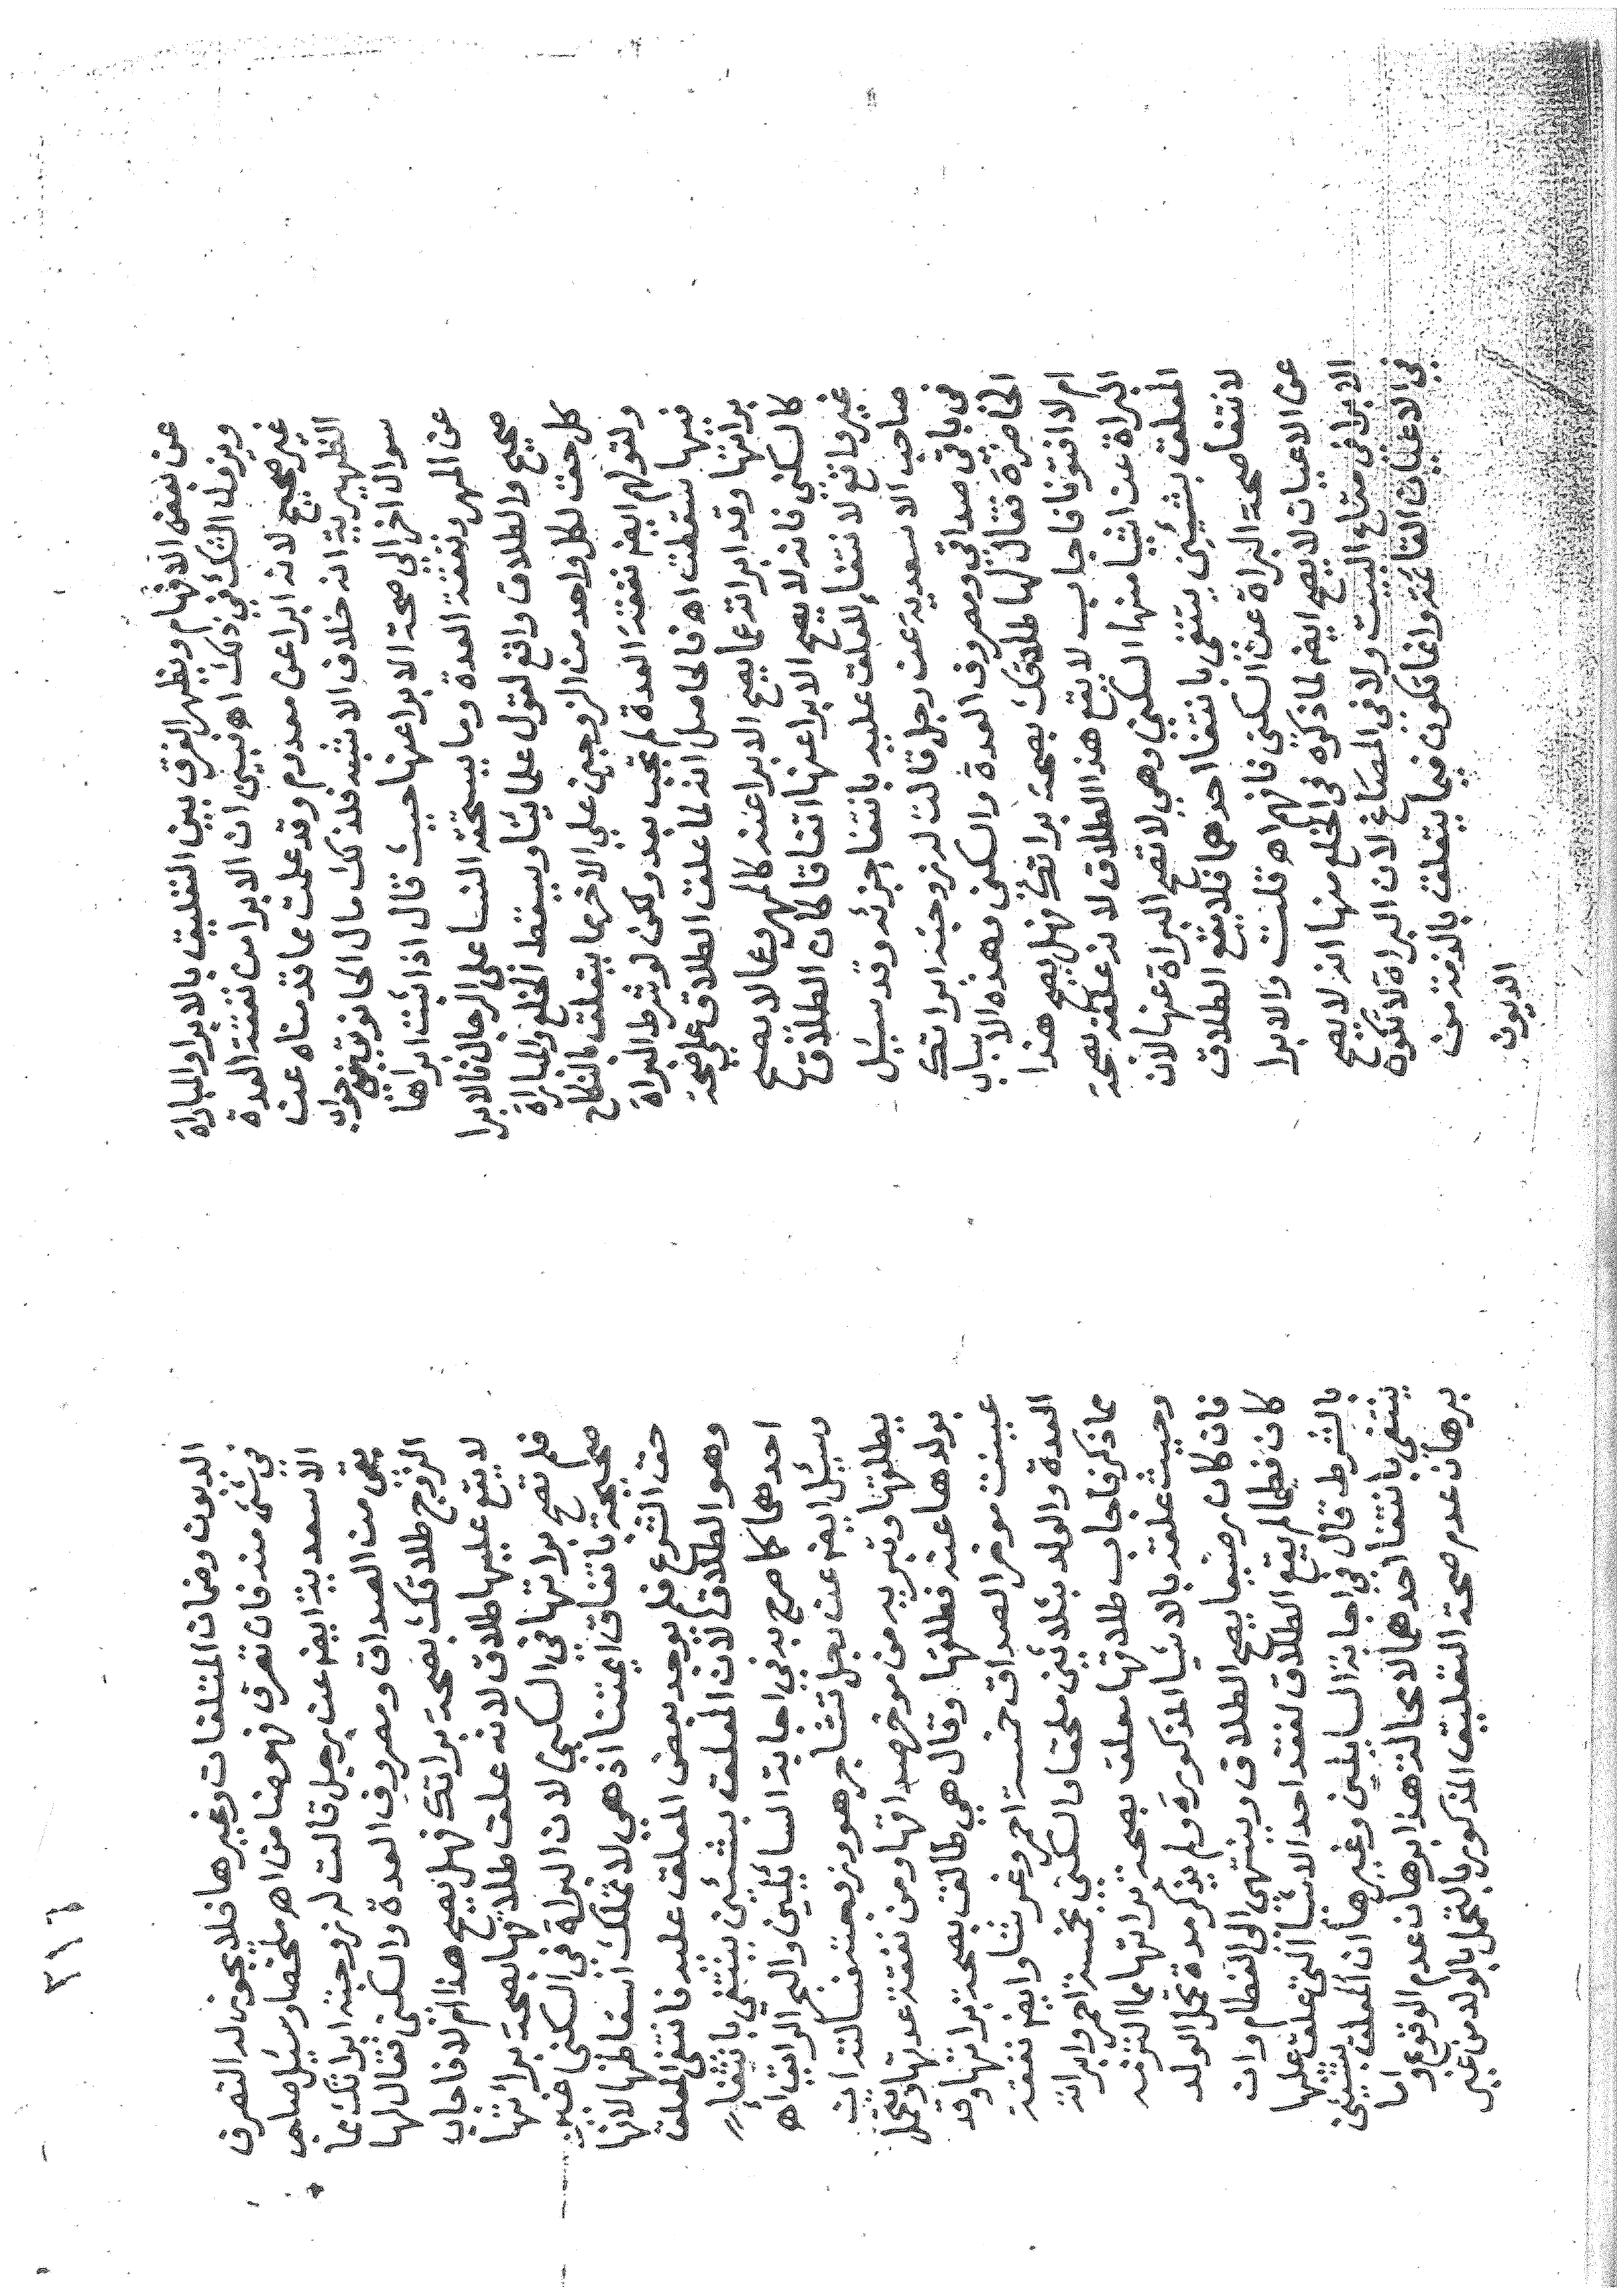 عن بعض الافهام ويظهر الفرق بين التعليق بالابرا والمباراة
ويزول الشك في ذلك اه فتبين ان الابرا من نفقة العدة
غير صحيح لانه ابرا عن معدوم وقد علمت مما قدمناه عن
الظهيرية انه خلاف الاشبه فلذلك مال الحانوتي في جواب
سوال اخر الي صحة الابرا عنها حيث قال اذا ثبت ابراها
عن المهر ونفقة العدة وما يستحقه النسا على الرجال فالابرا
صحيح والطلاق واقع لقول علمائنا ويسقط الخلع والمباراة
كل حق لكل واحد من الزوجين علي الاخر مما يتعلق بالنكاح
ولقولهم ايضا نفقة العدة لم تجب بعد ولكن لو شرط البراة
منها سقطت اه فالحاصل انه لما علق الطلاق علي صحة
براتها وقد ابراته عما يصح الابرا عنه كالمهر وعما لا يصح
كالسكني فانه لا يصح الابرا عنها اتفاقا كان الطلاق
غير واقع لانتفاء المعلق عليه بانتفا جزئه وقد سئل
صاحب الاسعدية عن رجل قالت له زوجته ابراتك
من باقي صداقي ومصروف العدة والسكنى وهذه الاسباب
الحاضرة فقال لها طلاقك بصحة براتك فهل يصح هذا
ام لا افتونا فاجاب لا يقع هذا الطلاق لانه علقه بصحة
البراة عن اشيا منها السكني وهي لا تصح البراة عنها لان
المعلق بشيئين ينتفي بانتفا احدهما فلا يقع الطلاق
لانتفا صحة البراة عن السكنى فافهم اه قلت والابرا
عن الاعيان لا يصح ايضا لما ذكره في الخلع منها انه لا يصح
الابرا في متاع البيت ولا في المصاغ لان البراة لا تكون
في الاعيان القائمة وانما تكون فيما يتعلق بالذمة من
الديون
٢٩٦
الديون وضمان المتلفات وغيرها فلا يجوز له التصرف
في شئ منه فان تصرف فهو ضامن اه ملخصا وسئل صاحب
الاسعدية ايضا عن رجل قالت له زوجته ابراتك عما
بقي من الصداق ومصروف العدة والسكنى فقال لها
الزوج طلاقك بصحة براتك فهل يصح هذا ام لا فاجاب
لا يقع عليها طلاق لانه علق طلاقها بصحة برائتها
فلم تصح براتها في السكني لان البراة في السكنى غير
صحيحة باتفاق ايمتنا اذ هي لا تملك اسقاطها لانها
حق الشرع فلم يوجد بعض المعلق عليه فانتفى المعلق
وهو الطلاق لان المعلق بشيئين ينتفي بانتفاء
احدهما كما صرح به في اجابة السائلين والبحر الرايق اه
وسئل ايضا عن رجل تشاجر هو وزوجته فسالته ان
يطلقها وتبريه من موخر صداقها ومن نفقة عدتها وتحمل
بولدها عنه فطلقها وقال هي طالق بصحة براتها وقد
عينت موخر الصداق خمسة احمر وغرشا وايضا نفقة
العدة والولد بثلاثين ملحقا والسكنى بخمسة احمر وابراته
مما ذكر فاجاب طلاقها معلق بصحة براتها مما التزمته
وحيث علقه بالاشيا المذكورة ولم يذكر مدة تحمل الولد
فان كان رضيعا يصح الطلاق وينتهي الى الفطام وان
كان فطيما لم يقع الطلاق لفقد احد الاشيا التي علق عليها
بالشرط قال في اجابة السايلين وغيرها ان المعلق بشيئين
ينتفي بانتفا احدهما لا محالة هذا برهان عدم الوقوع واما
برهان عدم صحة التعليق المذكور بالتحمل بالولد من غير